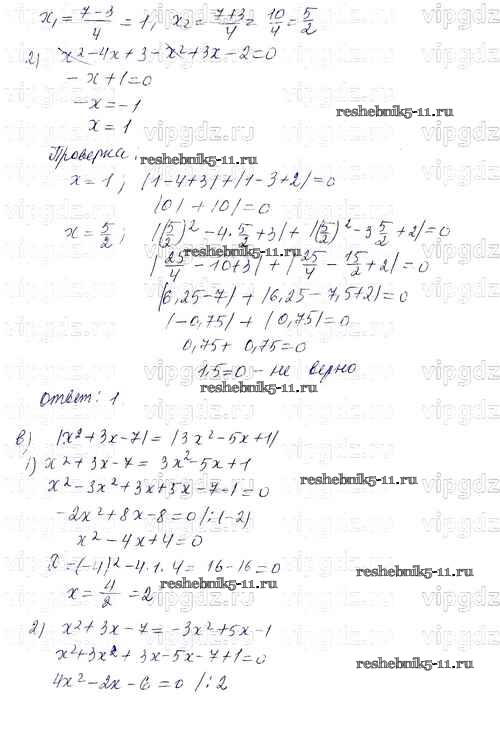 x₁ = (7-3)/4 = 1, x₂ = (7+3)/4 = 10/4 = 5/2
2) x²-4x+3-x²+3x-2=0
-x+1=0
-x=-1
x=1
reshebnik5-11.ru
Проверка:
reshebnik5-11.ru
x=1; |1-4+3|+|1-3+2|=0
|0|+|0|=0
x=5/2; |(5/2)²-4·5/2+3|+|(5/2)²-3 5/2+2|=0
reshebnik5-11.ru
|25/4-10+3|+|25/4-15/2+2|=0
|6,25-7|+|6,25-7,5+2|=0
|-0,75|+|0,75|=0
0,75+0,75=0
1,5=0 - не верно
reshebnik5-11.ru
Ответ: 1
в) |x²+3x-7|=|3x²-5x+1|
1) x²+3x-7=3x²-5x+1
reshebnik5-11.ru
x²-3x²+3x+5x-7-1=0
-2x²+8x-8=0 /:(-2)
reshebnik5-11.ru
x²-4x+4=0
=(-4)²-4·1·4=16-16=0
reshebnik5-11.ru
x=4/2=2
2) x²+3x-7=-3x²+5x-1
x²+3x²+3x-5x-7+1=0
reshebnik5-11.ru
4x²-2x-6=0 /:2
vipgdz.ru